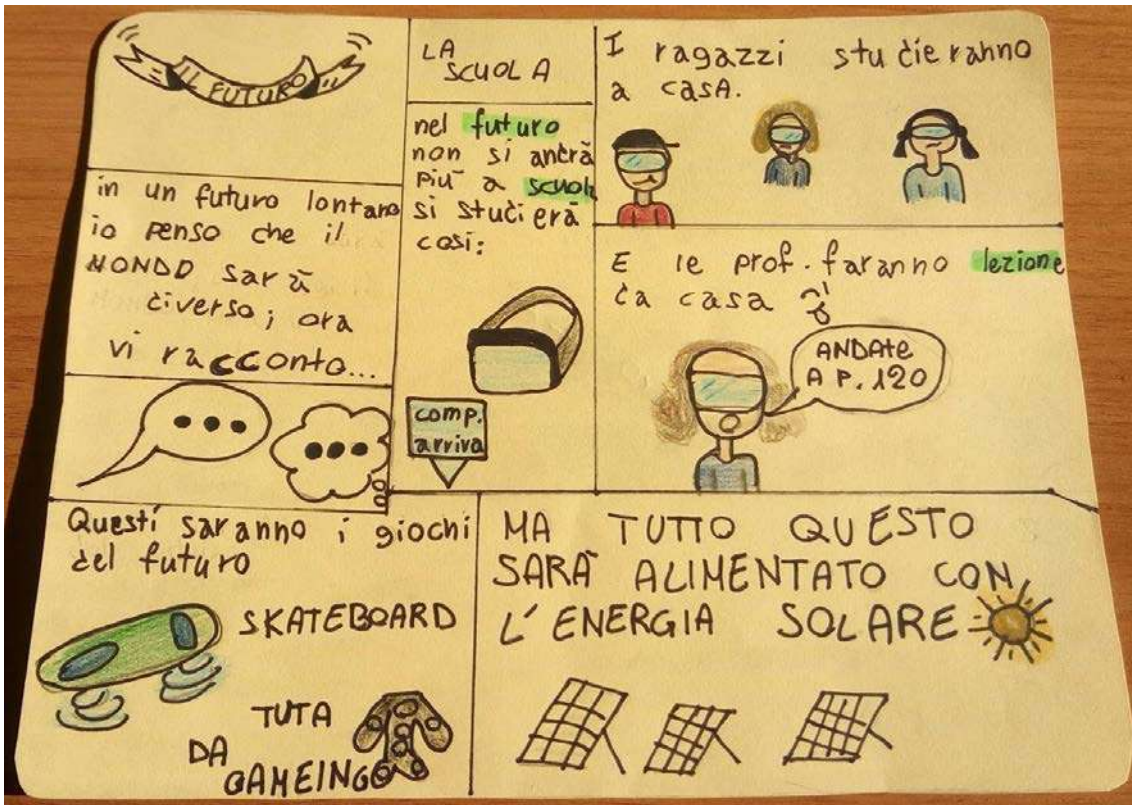 IL FUTURO
in un futuro lontano
io penso che il
MONDO sarà
diverso; ora
vi racconto...
LA
SCUOLA
nel futuro
non si andrà
più a scuola
si studierà
così:
comp.
arriva
I ragazzi studieranno
a casa.
E le prof. faranno lezione
da casa
ANDATE
A P. 120
Questi saranno i giochi
del futuro
SKATEBOARD
TUTA
DA
GAMEINGO
MA TUTTO QUESTO
SARÀ ALIMENTATO CON
L'ENERGIA SOLARE